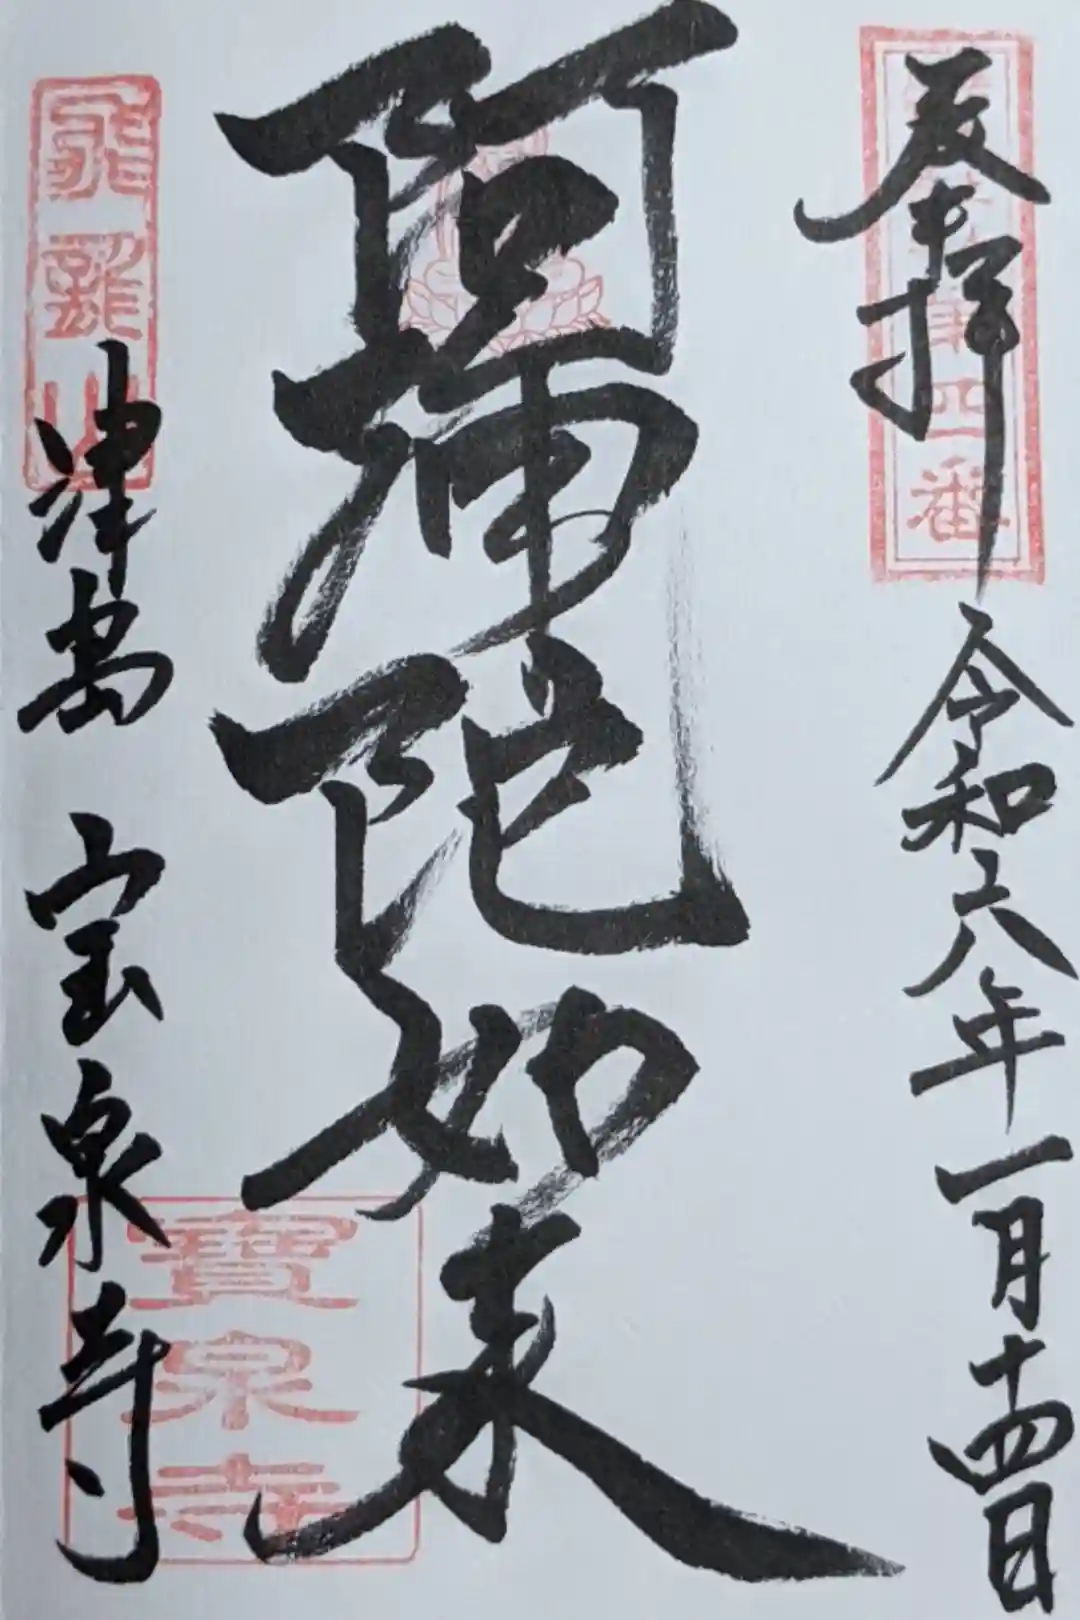 奉拝
令和六年一月十四日
四番
阿弥陀如来
飛龍山
津島 宝泉寺
寶泉寺